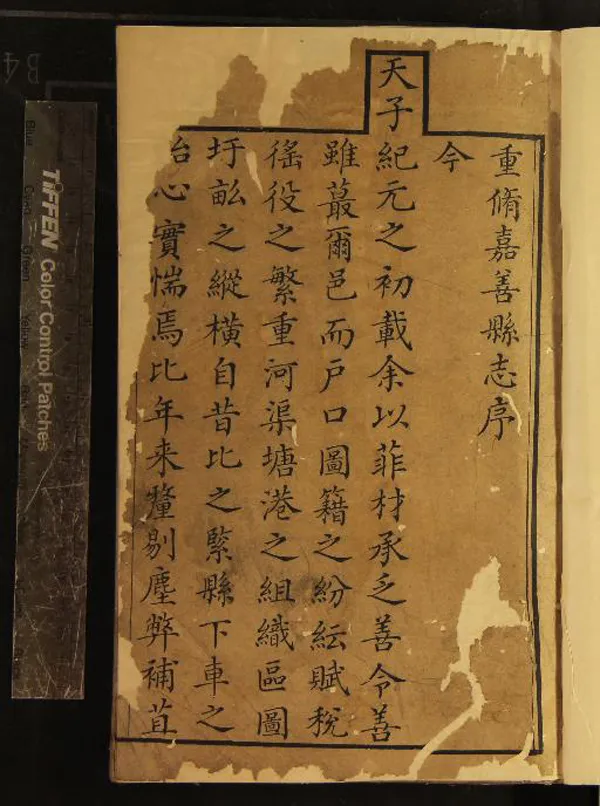 重脩嘉善縣志序
今
天子紀元之初載余以菲材承乏善令善
雖蕞爾邑而戶口圖籍之紛紜賦稅
徭役之繁重河渠塘港之組織區圖
圩畝之縱橫自昔比之緊縣下車之
始心實惴焉比年来釐剔塵弊補苴
TIFFEN Color Control Patches
Blue
B4